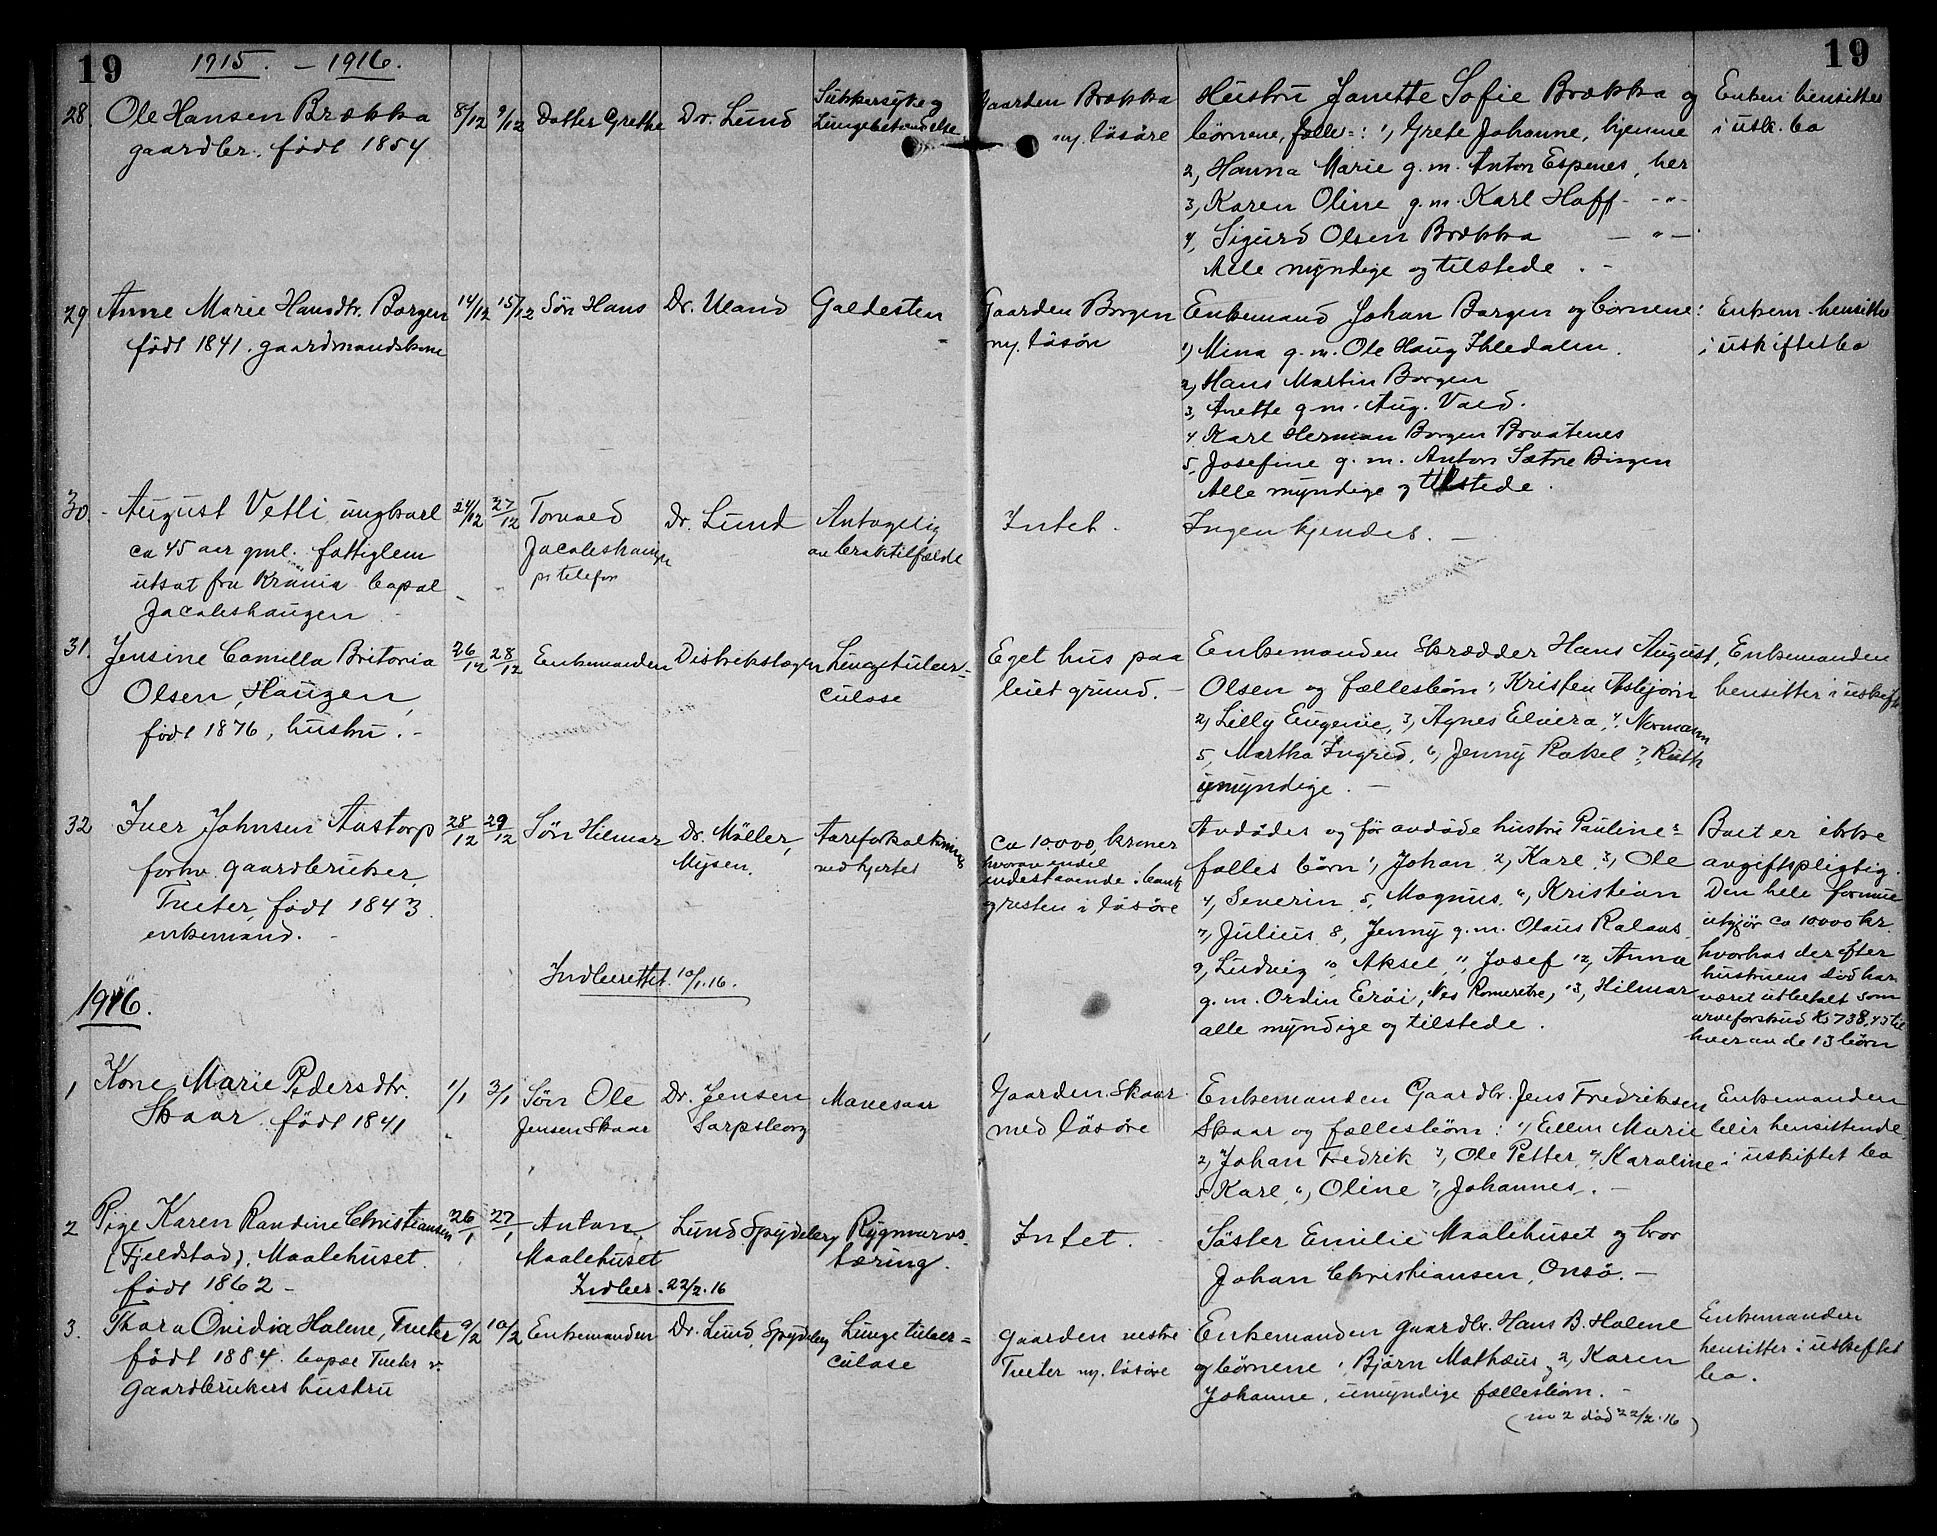 19 1915. - 1916. 19
28. Ole Hansen Brækka 8/12 9/12 Datter Grethe Dr. Lund Sukkersyke og Gaarden Brækka Hustru Janette Sofie Brækka og Enken hensitter
gaardbr. født 1854 Lungebetændelse m. løsøre børnene, fælles: 1, Grete Johanne, hjemme i usk. bo
2, Hanna Marie g.m. Anton Espenes, her
3, Karen Oline g.m. Karl Hoff - " -
4, Sigurd Olsen Brækka - " -
Alle myndige og tilstede. -
29 Anne Marie Hansdtr. Borgen 14/12 15/12 Søn Hans Dr. Uland Galdesten Gaarden Borgen Enkemand Johan Borgen og børnene: Enkem. hensitter
født 1841. gaardmandskone m. løsøre 1) Mina g.m. Ole Haug i uskiftet bo
2, Hans Martin Borgen
3, Anette g.m. Aug. Vold.
4. Karl Herman Borgen Braatenes
5, Josefine g.m. Anton Sætre Borgen
Alle myndige og tilstede.
30. August Vetli ungkarl 24/12 27/12 Torvald Dr. Lund Antagelig Intet. Ingen kjendes. -
ca 45 aar gml. fattiglem Jacobshaugen av kraktilfælde
utsat fra Krania bopæl pr telefon
Jacobshaugen
31. Jensine Camilla Britoria 26/12 28/12 Enkemanden Distriktslægen Lungetuber- Eget hus paa Enkemanden Skrædder Hans August, Enkemanden
Olsen, Haugen, culose leiet grund. - Olsen og fællesbørn: Kristen Asbjørn hensitter i uskiftet
født 1876, hustru. - 2) Lilly Eugenie, 3, Agnes Elvira, 4. Normann
5, Martha Ingrid, 6, Jenny Rakel 7, Ruth
umyndige. -
32 Iver Johnsen Aastorp 28/12 29/12 Søn Hilmar Dr. Møller, Aareforkalkning Ca 10.000 kroner Avdødes og før avdøde hustru Paulines Boet er ikke
forhv. gaardbruker, Mysen. ved hjertet hvorav endel fælles børn 1, Johan 2, Karl 3, Ole avgiftspligtig.
Tveter, født 1843 indestaaende i bank 4, Severin 5, Magnus 6, Kristian Den hele formue
enkemand. - og resten i løsøre 7, Julius 8, Jenny g.m. Olaus utgjør ca 10000 kr
Indberettet 10/1.16. 9, Ludvig 10, Aksel 11, Josef 12, Anna hvorhos der efter
1916. g.m. Ordin 13, Hilmar hustruens død har
alle myndige og tilstede. været utbetalt som
arveforskud Kr 738,45 til
hver av de 13 børn
1 Kone Marie Pedersdtr. 1/1 3/1 Søn Ole Dr. Jensen Mavesaar Gaarden Skaar Enkemanden Gaardbr. Jens Fredriksen Enkemanden
Skaar født 1841 Jensen Skaar Sarpsborg med løsøre Skaar og fællesbørn: 1) Ellen Marie blir hensittende
2, Johan Fredrik 3, Ole Petter 4, Karoline i uskiftet bo
5 Karl 6, Oline 7, Johannes. -
2 Pige Karen Randine Christiansen 26/1 27/1 Anton, Lund Spydeberg Rygmarvs- Intet. Søster Emilie Maalehuset og bror
(Fjeldstad), Maalehuset. Maalehuset tæring. Johan Christiansen, Onsø. -
født 1862 - Indber. 22/2.16
3. Thora Ovidia Holene, Tveter 9/2 10/2 Enkemanden Dr. Lund, Spydeberg Lungetuber- Gaarden vestre Enkemanden gaardbr. Hans B. Holene Enkemanden
født 1884. bopæl Tveter v. culose Tveter m. løsøre og børnene 1, Bjørn Mathæus 2, Karen hensitter i uskiftet
Gaardbrukers hustru Johanne, umyndige fællesbørn. - bo.
(no 2 død 22/2.16)